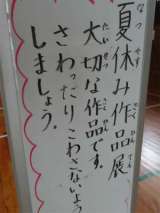 夏休み作品展
大切な作品です。
さわったりこわさないよう
しましょう。